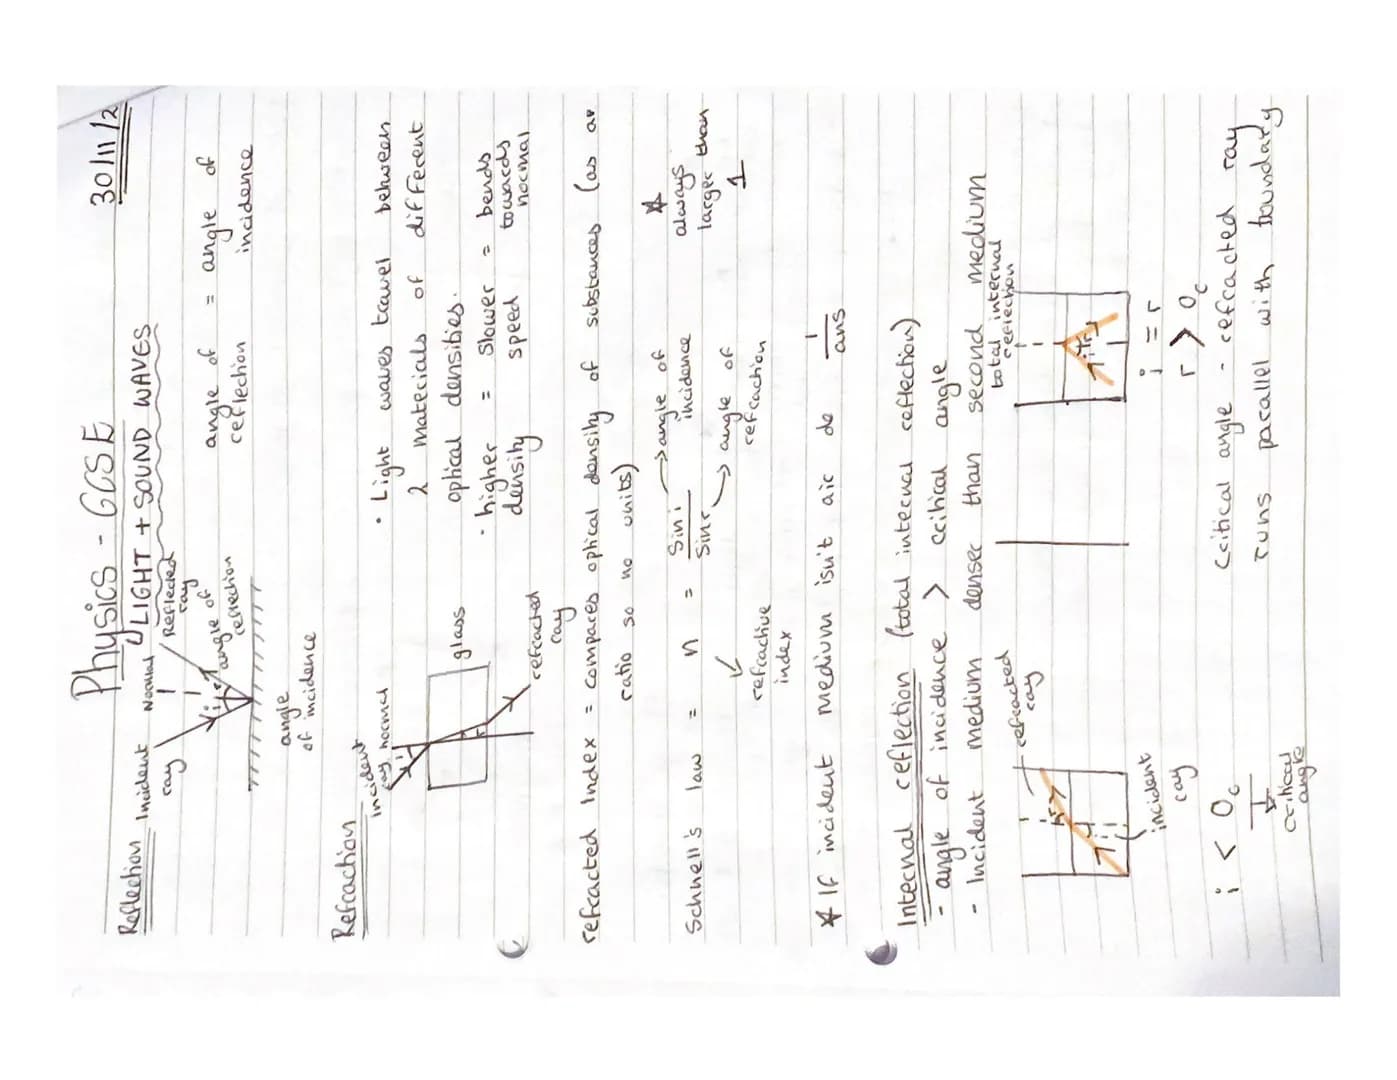 Physics - GCSE
30/11/2
LIGHT + SOUND WAVES
Reflection
Incident ray
Normal
Reflected ray
i
r
angle of reflection
angle of incidence
angle of reflection = angle of incidence
Refraction
incident ray
normal
i
r
glass
refracted ray
• Light waves travel between
2 materials of different
optical densities.
• higher density = slower speed = bends towards normal
refracted Index = compares optical density of substances (as a
ratio so no units)
Schnell's law = n = Sin i / Sin r
→ angle of incidence
→ angle of refraction
refractive index
* always larger than 1
* If incident medium isn't air do 1/ans
Internal reflection (total internal reflection)
- angle of incidence > critical angle
- Incident medium denser than second medium
refracted ray
r
i
incident ray
i < Oc
critical angle
total internal reflection
i r
i = r
r > Oc
Critical angle - refracted ray
runs parallel with boundary